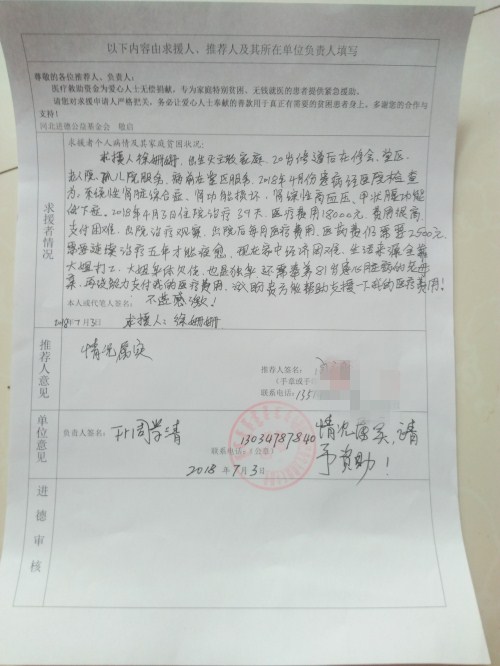 以下内容由求援人、推荐人及其所在单位负责人填写
尊敬的各位推荐人、负责人：
医疗救助借金为爱心人士无偿捐献，专为家庭特别贫困，无钱就医的患者提供紧急援助。
请您对求援申请人严格把关，务必让爱心人士奉献的善款用于真正有需要的贫困患者身上。多谢您的合作与
支持！
河北进德公益基金会 敬启
求援者情况
求援者个人病情及其家庭贫困状况：
求援人徐姗姗，出生天主教家庭，20岁修道后在修会、堂区
幼儿院、孤儿院服务，病前在堂区服务，2018年4月份患病经医院检查
为，系统性肾脏综合症，肾功能损坏，肾综性高血压，甲状腺功能
低下症。2018年4月3日住院治疗39天医疗费用18000元，费用很高
支付困难，出院治疗观察，出院后每月医疗费用，医药费仍需要2500元
需要连续治疗五年才能痊愈，现在家中经济困难，生活来源全靠
大姐打工，大姐年体欠佳，也是很辛 还需奉养81岁患心脏病的老母
亲，再没能力支付我的医疗费用，深盼贵方能帮助支援一下我的医疗费用！
不胜感激！
本人或代笔人签名：
2018年7月3日 求援人：徐姗姗
推荐人意见
情况属实
推荐人签名：
（手章或手印）
联系电话：135
单位意见
负责人签名：
周学清
13034787840
联系电话：（公章）
情况属实，请
予资助！
2018 年 7月 3日
进德审核